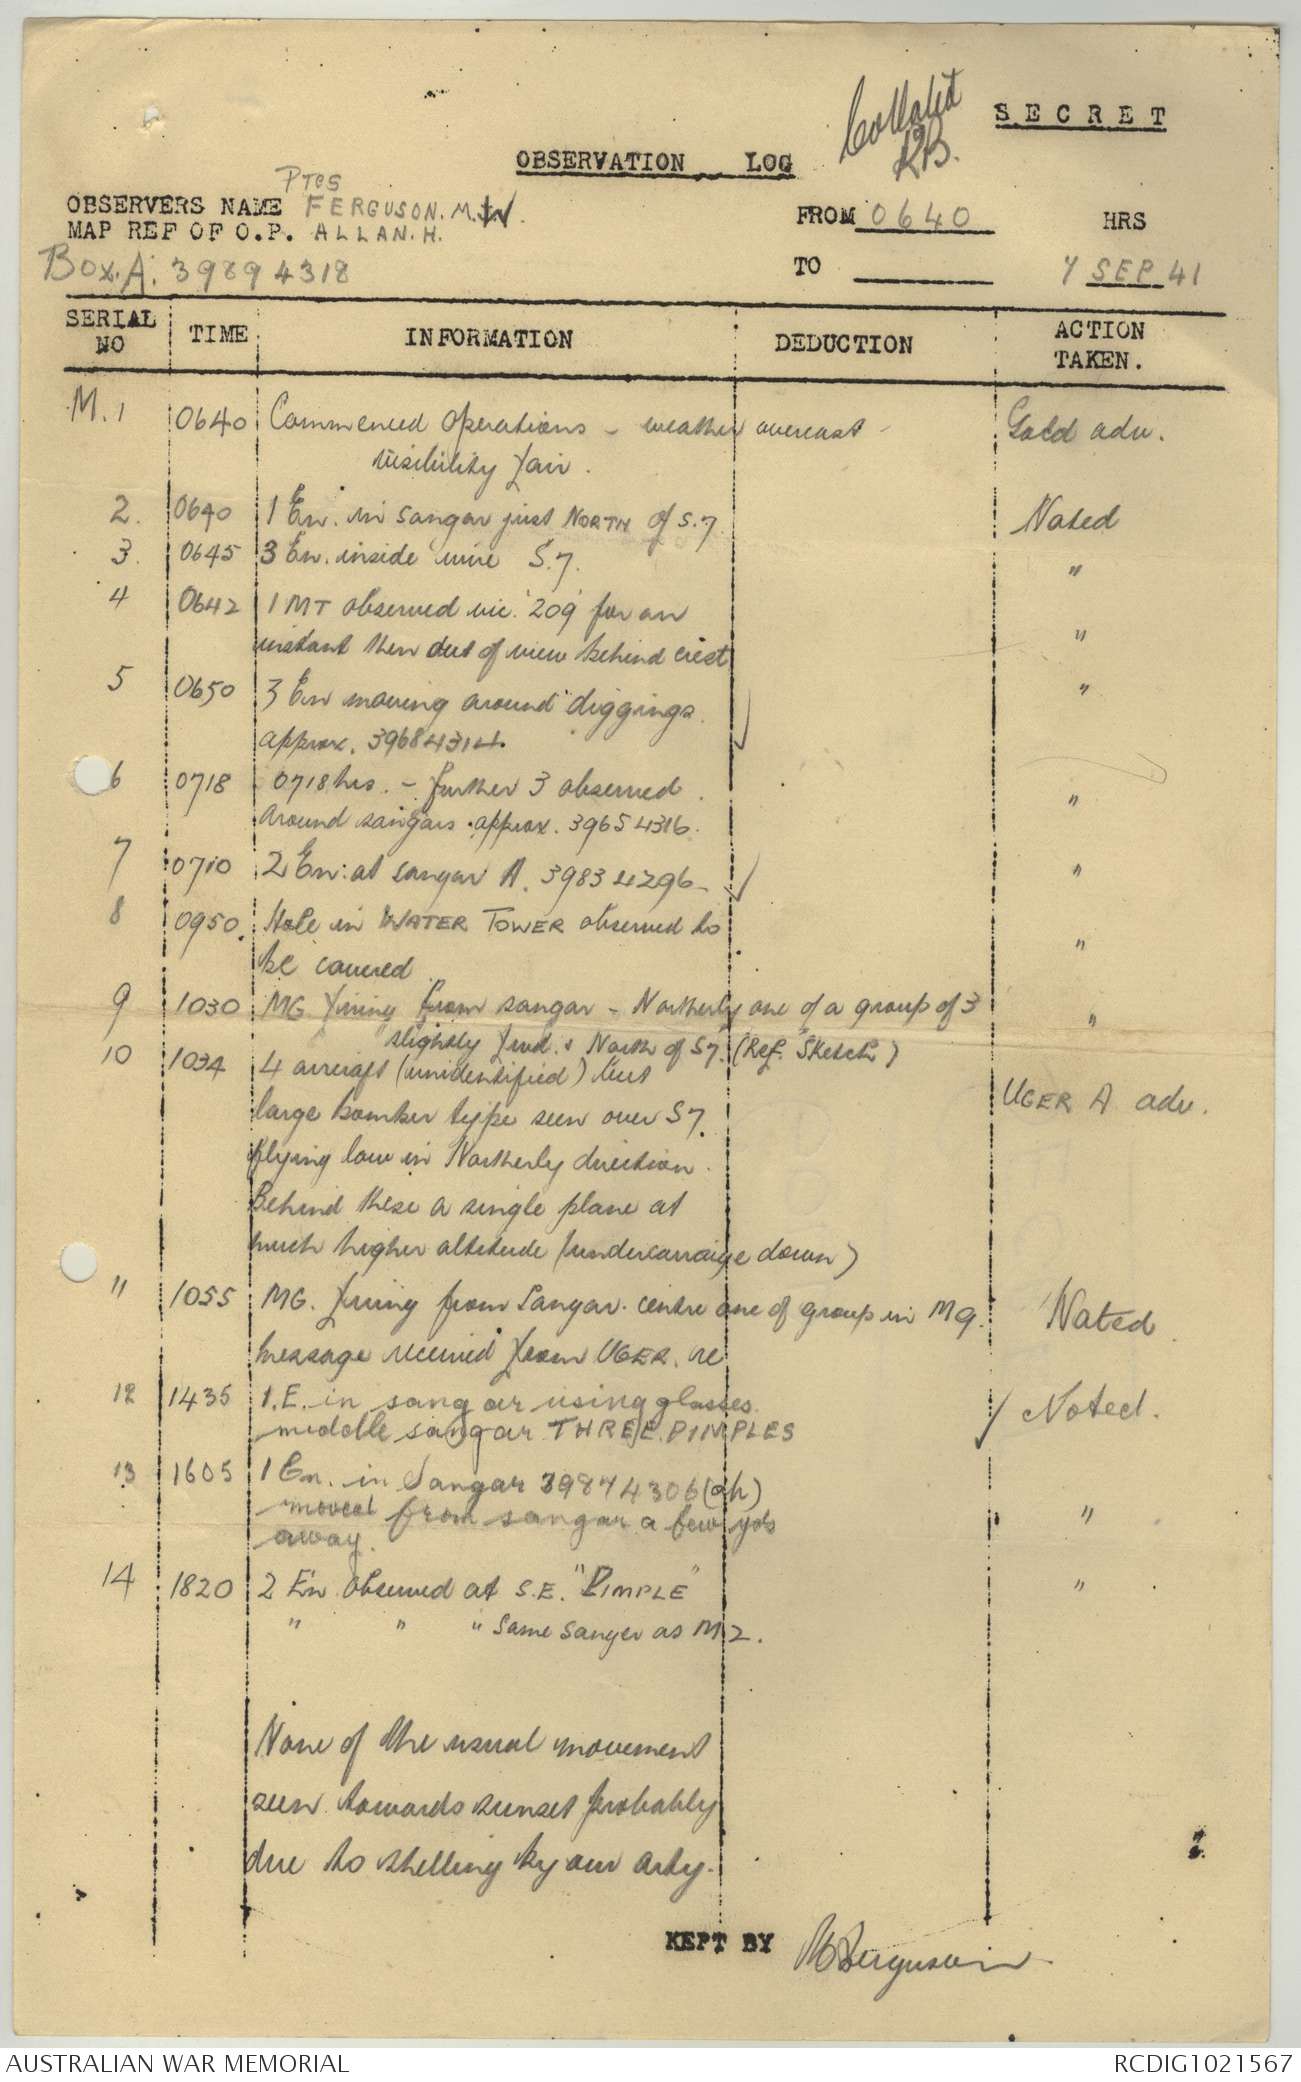 Collated
RB.
SECRET
OBSERVATION LOG
Ptes
OBSERVERS NAME FERGUSON. M.
MAP REF OF O.P. ALLAN. H.
FROM 0640 HRS
Box. A. 39894318
TO 7 SEP 41
SERIAL NO TIME INFORMATION DEDUCTION ACTION TAKEN.
M. 1 0640 Commenced operations – weather overcast – Gold adv.
visibility fair.
2. 0640 1 En. in sangar just NORTH of S.7 Noted
3. 0645 3 En. inside wire S.7. "
4 0642 1 MT observed vic. '209' for an "
instant then out of view behind crest
5 0650 3 En moving around diggings. "
approx. 39684314.
6 0718 0718 hrs. – further 3 observed "
around sangars. approx. 39654316.
7 0710 2 En: at sangar A. 39834296– "
8 0950. Hole in WATER TOWER observed to "
be covered
9 1030 MG. firing from sangar – Northerly one of a group of 3 "
slightly fwd. & North of S7. (Ref. Sketch)
10 1034 4 aircraft (unidentified) but UGER A adv.
large bomber type seen over S7.
flying low in Northerly direction.
Behind these a single plane at
much higher altitude (undercarraige down)
11 1055 MG. firing from Sangar. centre one of group in M9. Noted
message received from UGER. re
12 1435 1. E. in sangar using glasses. Noted.
middle sangar THREE PIMPLES
13 1605 1 En. in Sangar 39874306 (ah) "
moved from sangar a few yds
away.
14 1820 2 En observed at S.E. "PIMPLE" "
" " " same sanger as M12.
None of the usual movement
seen towards sunset probably
due to shelling by our arty.
KEPT BY M Ferguson
AUSTRALIAN WAR MEMORIAL RCDIG1021567